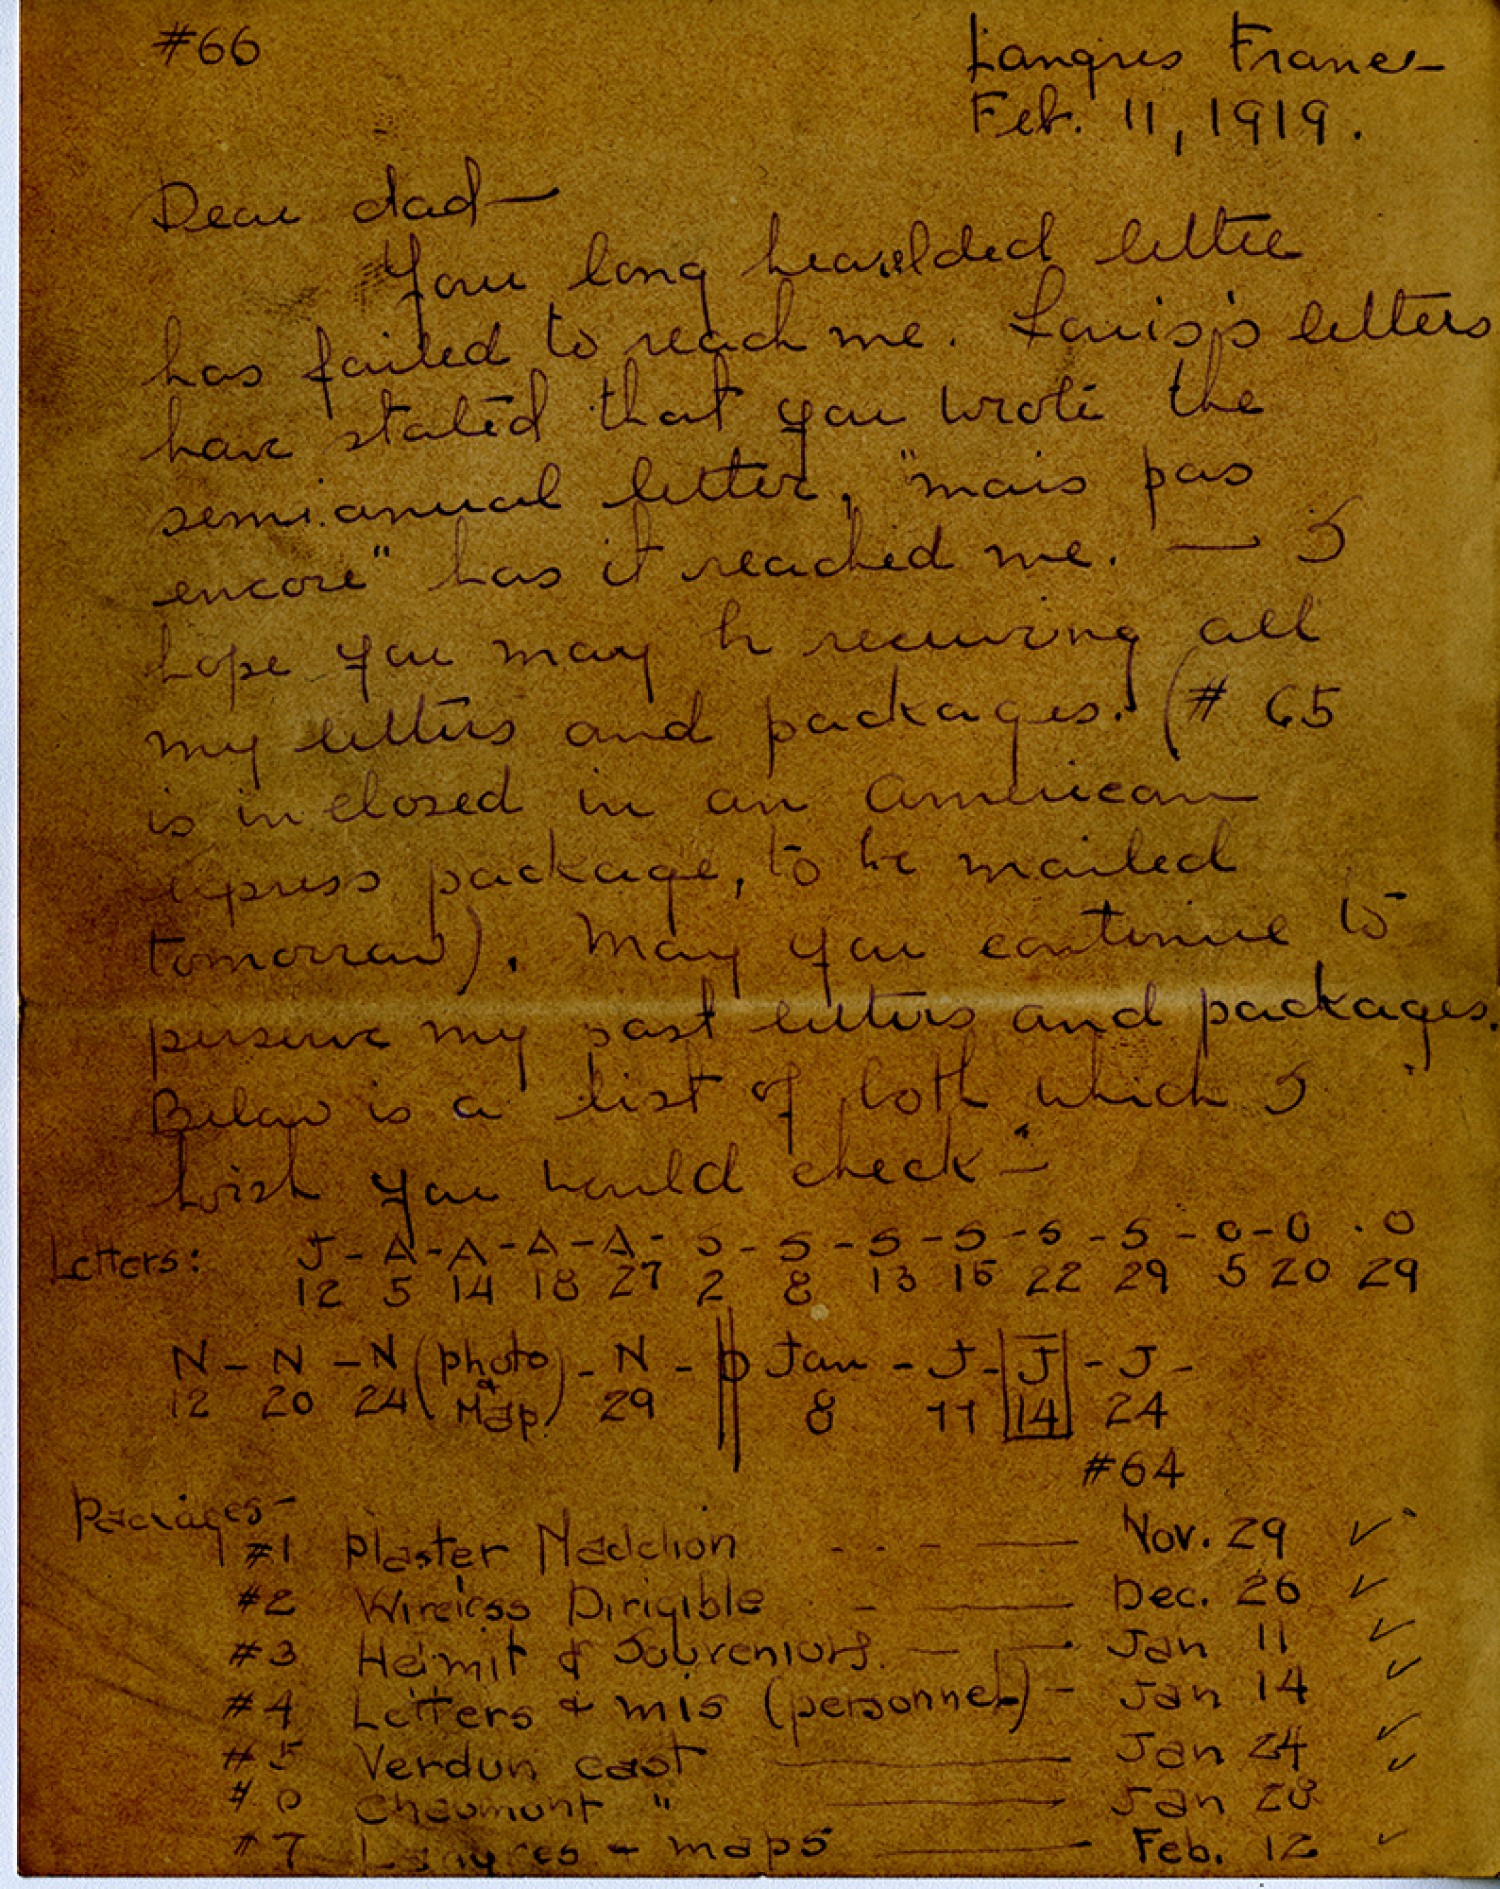 #66
Langres France
Feb. 11, 1919.
Dear dad—
Your long hearalded letter
has failed to reach me. Louis's letters
have stated that you wrote the
semi.anual letter, "mais pas
encore" has it reached me. — I
hope you may be receiving all
my letters and packages. (# 65
is inclosed in an American
express package, to be mailed
tomorrow). May you continue to
perserve my past letters and packages.
Below is a list of both which I
wish you would check—
Letters: J - A - A - A - A - S - S - S - S - S - S - O - O - O
12 5 14 18 27 2 8 13 15 22 29 5 20 29
N - N - N (Photo & Map) - N - D Jan - J - J - J -
12 20 24 29 8 11 14 24
#64
Packages—
#1 Plaster - - - — Nov. 29 ✓
#2 Wireless Dirigible - — Dec. 26 ✓
#3 Helmit & Souveniors. — — Jan 11 ✓
#4 Letters & mis (personnel) - Jan 14 ✓
#5 Verdun cast — Jan 24 ✓
# Chaumont " — Jan 28 ✓
#7 Langres - maps — Feb. 12 ✓